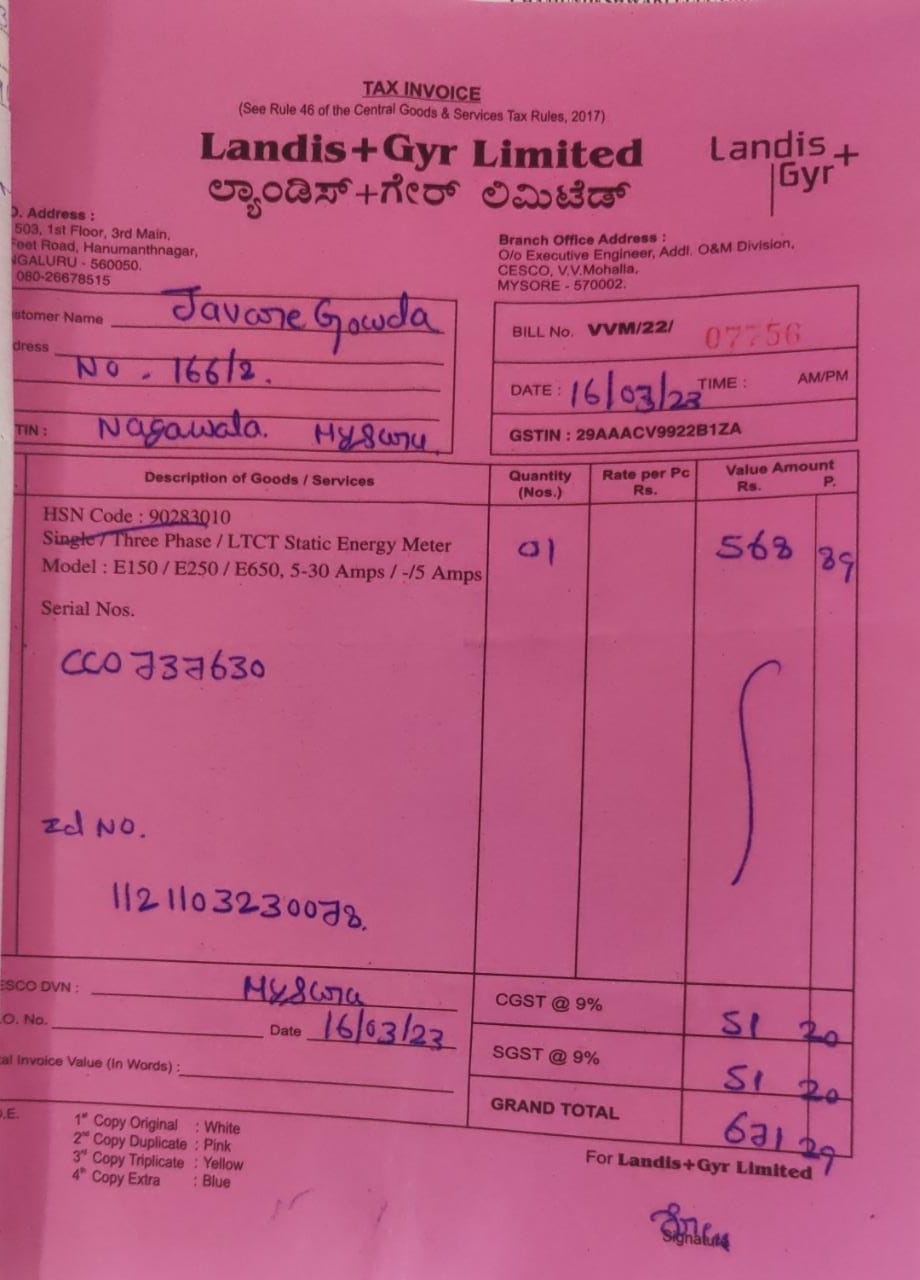 TAX INVOICE
(See Rule 46 of the Central Goods & Services Tax Rules, 2017)
Landis+Gyr Limited
ಲ್ಯಾಂಡಿಸ್+ಗೇರ್ ಲಿಮಿಟೆಡ್
Landis
Gyr+
O. Address :
503, 1st Floor, 3rd Main,
Feet Road, Hanumanthnagar,
NGALURU - 560050.
080-26678515
Branch Office Address :
O/o Executive Engineer, Addl. O&M Division,
CESCO, V.V.Mohalla,
MYSORE - 570002.
stomer Name Javare Gowda
dress
No. 166/2.
TIN : Nagawala. Mysuru.
BILL No. VVM/22/ 07756
DATE : 16/03/23 TIME : AM/PM
GSTIN : 29AAACV9922B1ZA
Description of Goods / Services Quantity (Nos.) Rate per Pc Rs. Value Amount Rs. P.
HSN Code : 90283010
Single / Three Phase / LTCT Static Energy Meter 01 568 89
Model : E150 / E250 / E650, 5-30 Amps / -/5 Amps
Serial Nos.
CC0737630
Id No.
1121103230078.
ESCO DVN : Mysuru
.O. No. Date 16/03/23
al Invoice Value (In Words) :
CGST @ 9% 51 20
SGST @ 9% 51 20
GRAND TOTAL 671 29
.E.
1st Copy Original : White
2nd Copy Duplicate : Pink
3rd Copy Triplicate : Yellow
4th Copy Extra : Blue
For Landis+Gyr Limited
Signature